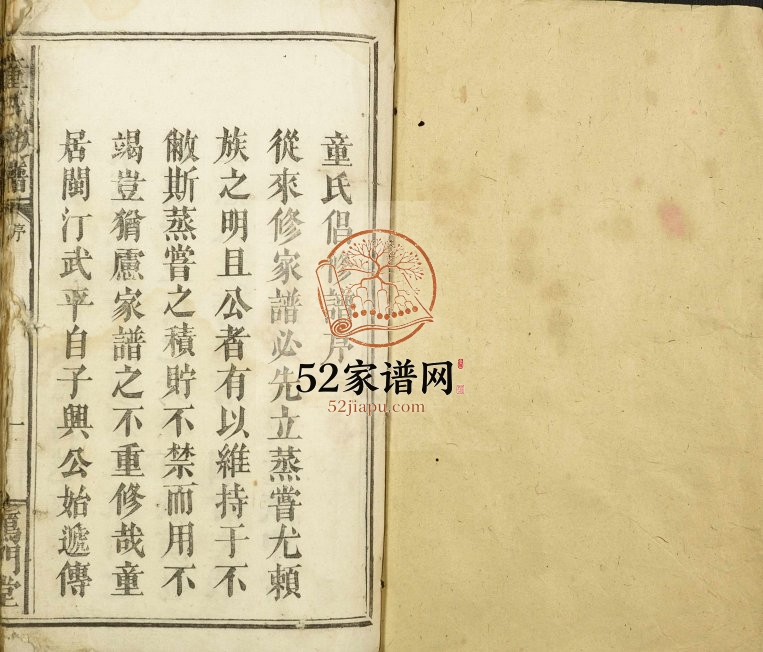 童氏倡修譜序
從來修家譜必先立蒸嘗尤賴
族之明且公者有以維持于不
敝斯蒸嘗之積貯不禁而用不
竭豈猶慮家譜之不重修哉童
居閩汀武平自子興公始遞傳
童氏族譜
序
一
門堂
52家谱网
52jiapu.com